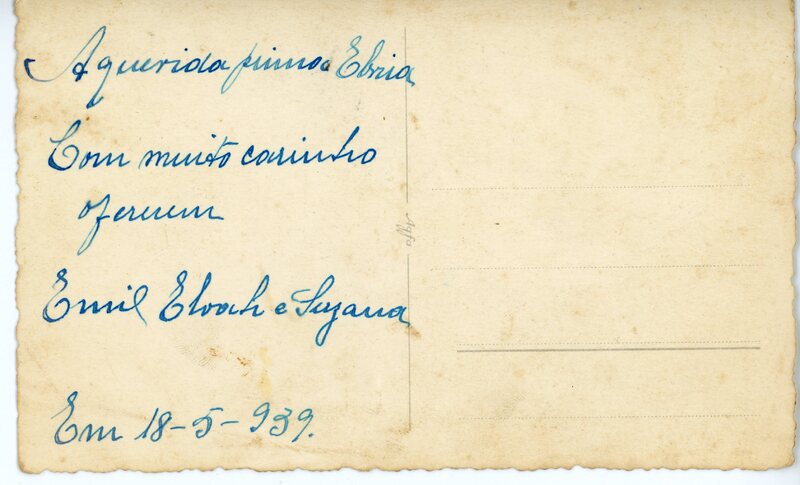 A querida prima Ebria
Com muito carinho
oferecem
Emil Eloah e Suzana
Em 18-5-939.
Agfa